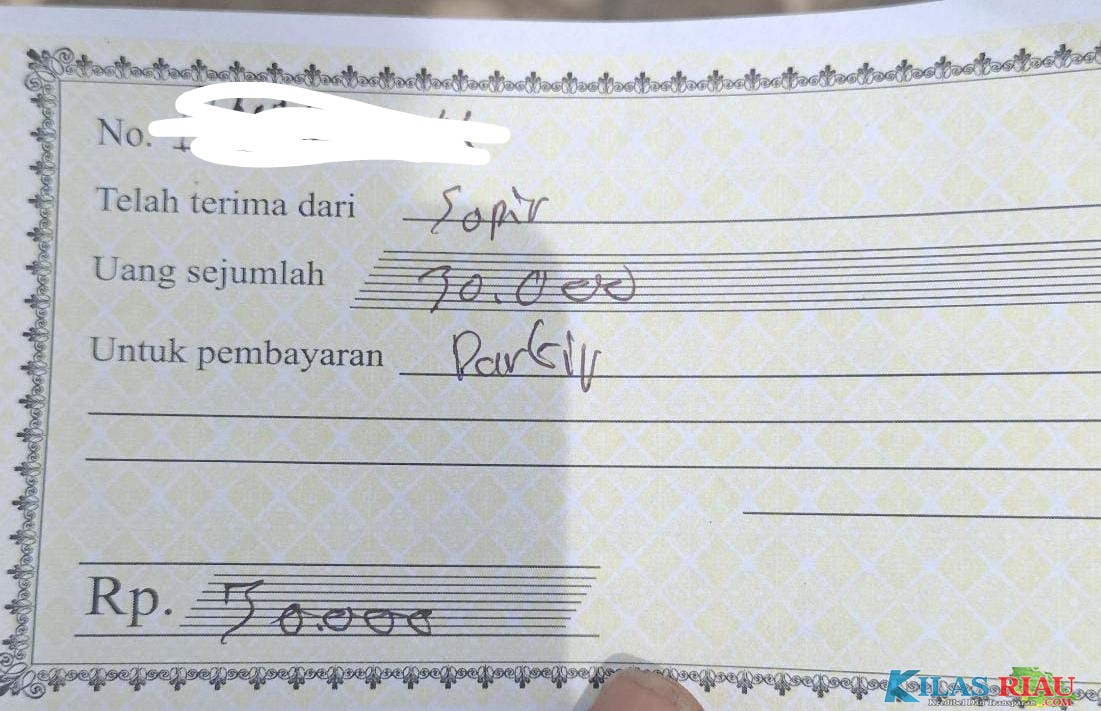 No.
Telah terima dari Sopir
Uang sejumlah 30.000
Untuk pembayaran Parkir
Rp. 30.000
KILAS RIAU
Kredibel Dan Transparan .COM